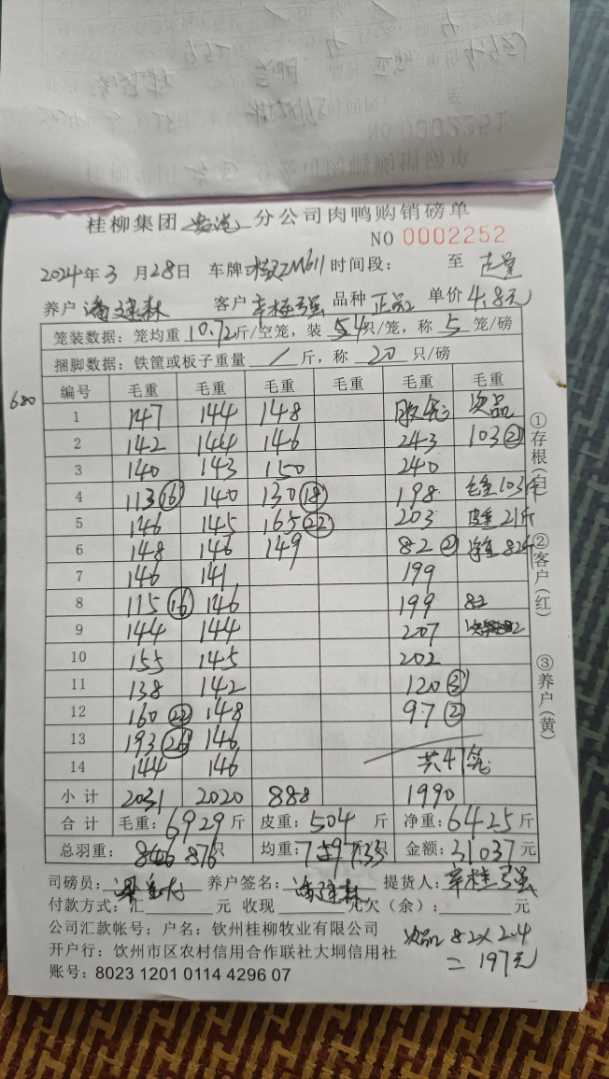 桂柳集团 贵港 分公司肉鸭购销磅单
NO 0002252
2024年3月28日 车牌 时间段： 至
养户 潘建森 客户 辛桂强 品种 正品 单价 4.8元
笼装数据：笼均重 10.72 斤/空笼，装 54 只/笼，称 5 笼/磅
捆脚数据：铁筐或板子重量 / 斤，称 20 只/磅
680
编号 毛重 毛重 毛重 毛重 毛重 毛重
1 147 144 148 次品
2 142 144 146 243 103②
3 140 143 150 240
4 113⑯ 140 130⑱ 198 毛重103斤
5 146 145 165㉒ 203 皮重21斤
6 148 146 149 82② 净重82斤
7 146 141 199
8 115⑯ 146 199 82
9 144 144 207
10 155 145 202
11 138 142 120③
12 160㉒ 148 97②
13 193㉖ 146
14 144 146 共47笼
小计 2031 2020 888 1990
合计 毛重：6929斤 皮重：504斤 净重：6425斤
总羽重： 876只 均重：7.33只 金额：31037元
司磅员： 养户签名：潘建森 提货人：辛桂强
付款方式：汇 元 收现 元欠（余）： 元
公司汇款帐号：户名：钦州桂柳牧业有限公司
开户行：钦州市区农村信用合作联社大垌信用社
账号：8023 1201 0114 4296 07
次品 82×2.4
=197元
①存根（白）
②客户（红）
③养户（黄）